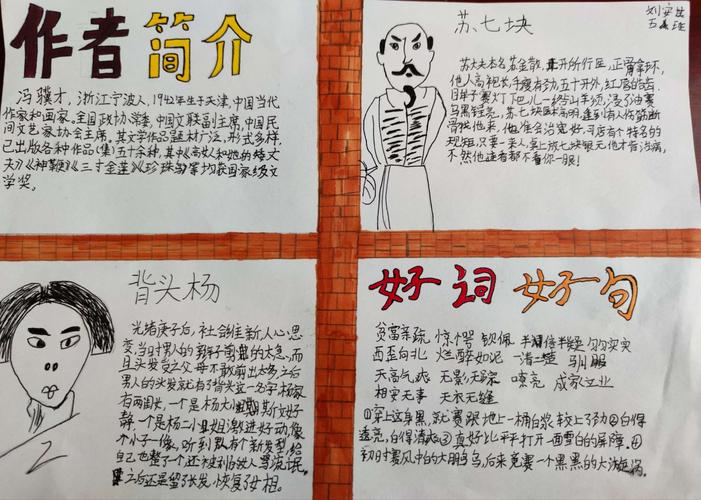 作者简介
冯骥才，浙江宁波人，1942年生于天津，中国当代
作家和画家，全国政协常委，中国文联副主席，中国民
间文艺家协会主席，其文学作品题材广泛，形式多样，
已出版各种作品(集)五十余种，其中《高女人和她的矮丈
夫》《神鞭》《三寸金莲》《珍珠鸟》等均获国家级文
学奖。
苏七块
苏大夫本名苏金散，开所行医，正骨拿环，
他人高袍长，手瘦有劲，五十开外，红唇皓齿，
目半子赛灯，下巴儿一绺山羊须，浸了油赛
乌黑锃亮，苏七块医术高明，逢到有人伤筋断
骨找他来，他准会治
规矩，只要来人，
不然他连看都不看你一眼！
背头杨
光绪庚子后，社会维新人心思
变，当时男人的辫子剪
且头发受之父母不敢剪出太多，之后
男人的头发就有了背头这一名字杨家
有两闺
静，一个是杨二小姐激进好动像
个小子一样，听到
自己也整了个，
之后还是留了长发，恢复了女相。
好词好句
贫富亲疏 惊愕 钦佩 半信半疑 匀匀实实
西歪向北 烂醉如泥 一清二楚 驯服
天高气爽 无影无踪 嘹亮 成家立业
相安无事 天衣无缝
①穿上这身黑，就赛跟地上一桶白浆较上了劲②白得
透亮，白得清爽③真好比平平打开一面雪白的屏障。④
初时赛风中的大鹏鸟，后来竟赛一个黑黑的大漩涡。
2